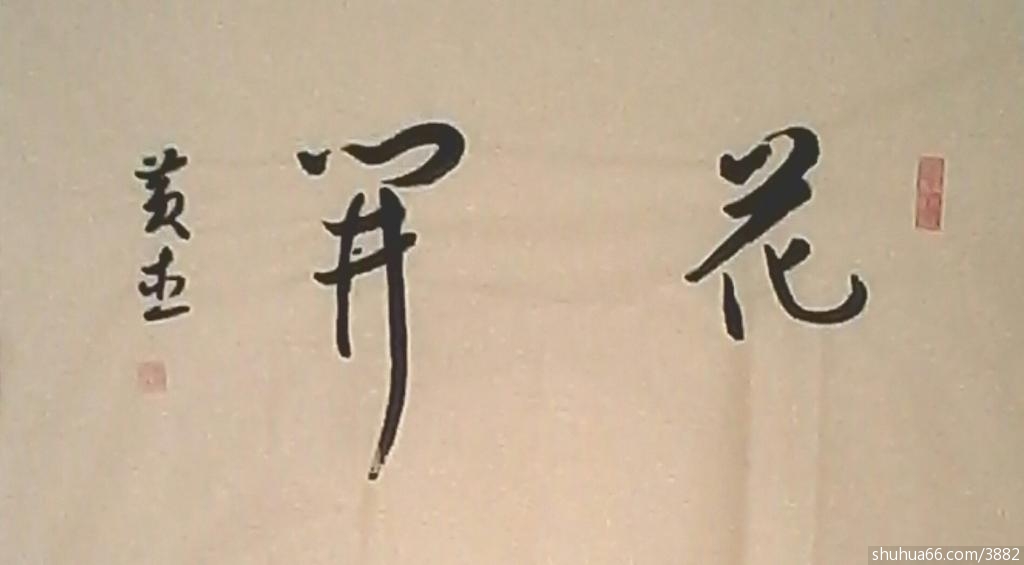 花開
黄杰
shuhua66.com/3882